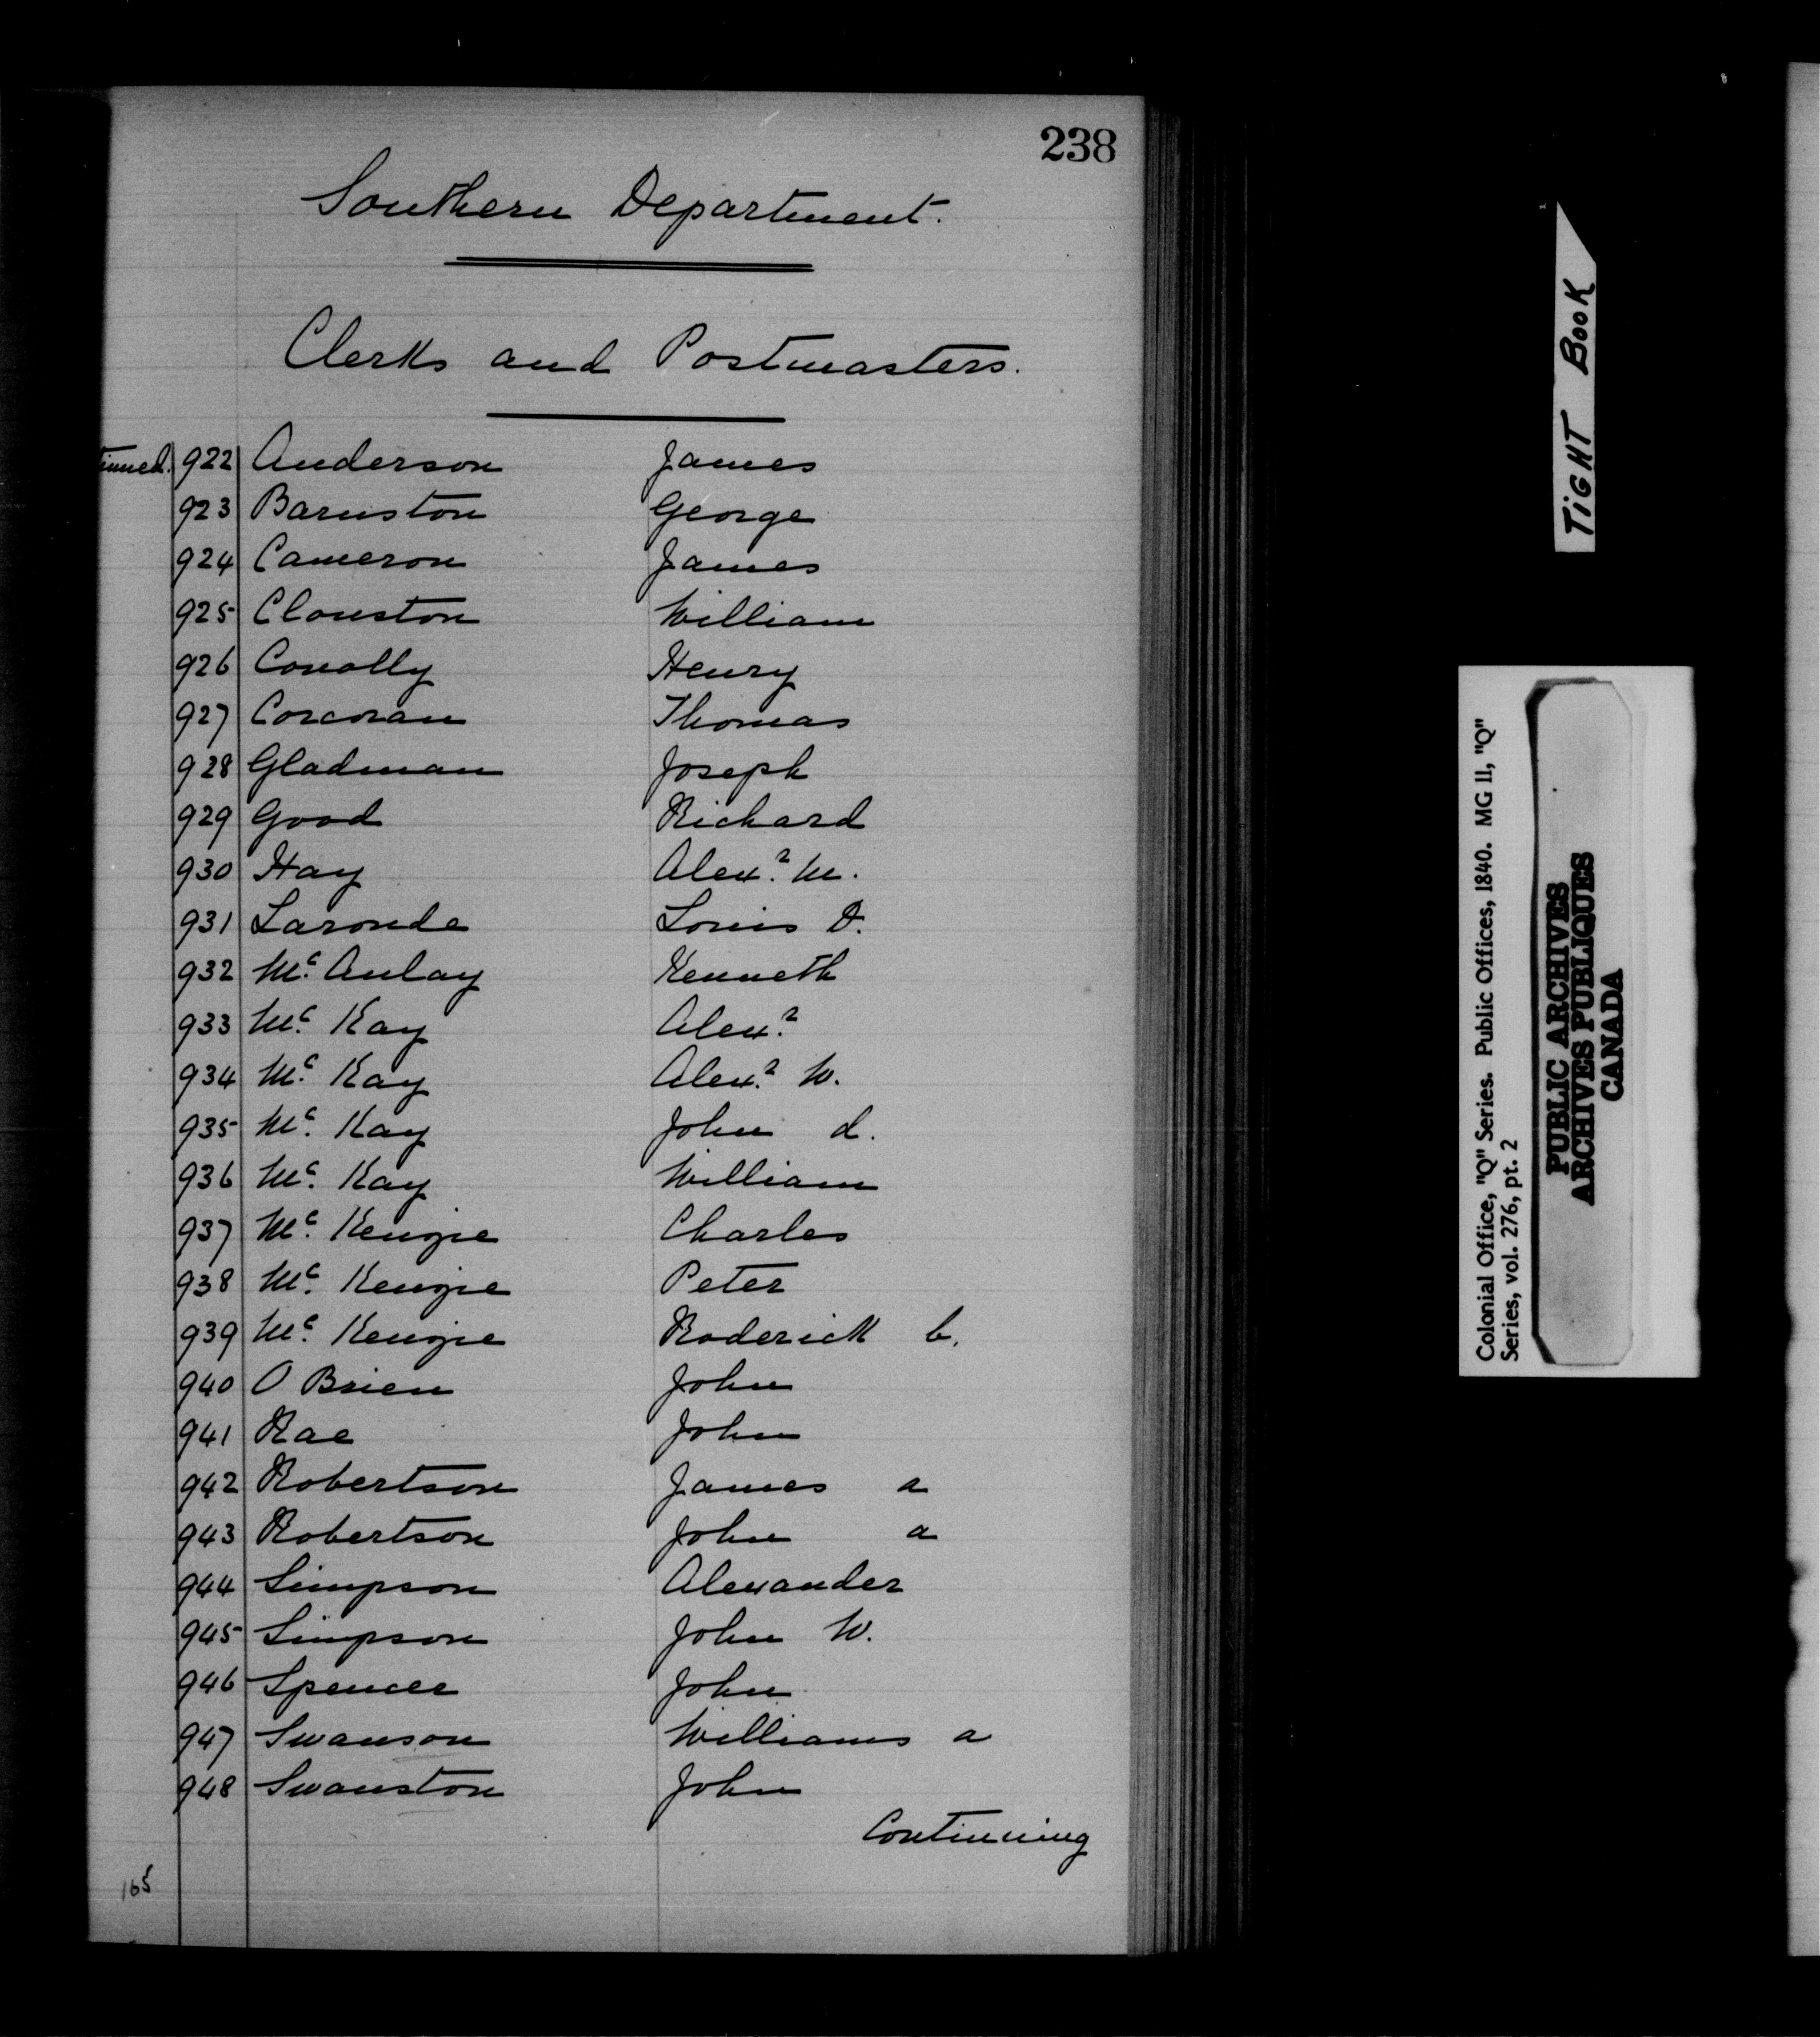 238
Southern Department.
Clerks and Postmasters.
tinued. 922 Anderson James
923 Barnston George
924 Cameron James
925 Clouston William
926 Conolly Henry
927 Corcoran Thomas
928 Gladman Joseph
929 Good Richard
930 Hay Alexr. M.
931 Laronde Louis D.
932 Mc. Aulay Kenneth
933 Mc. Kay Alexr.
934 Mc. Kay Alexr. W.
935 Mc. Kay John d.
936 Mc. Kay William
937 Mc. Kenzie Charles
938 Mc. Kenzie Peter
939 Mc. Kenzie Roderick b.
940 O Brien John
941 Rae John
942 Robertson James a
943 Robertson John a
944 Simpson Alexander
945 Simpson John W.
946 Spencer John
947 Swanson Williams a
948 Swanston John
Continuing
165
TIGHT BOOK
Colonial Office, "Q" Series. Public Offices, 1840. MG 11, "Q"
Series, vol. 276, pt. 2
PUBLIC ARCHIVES
ARCHIVES PUBLIQUES
CANADA